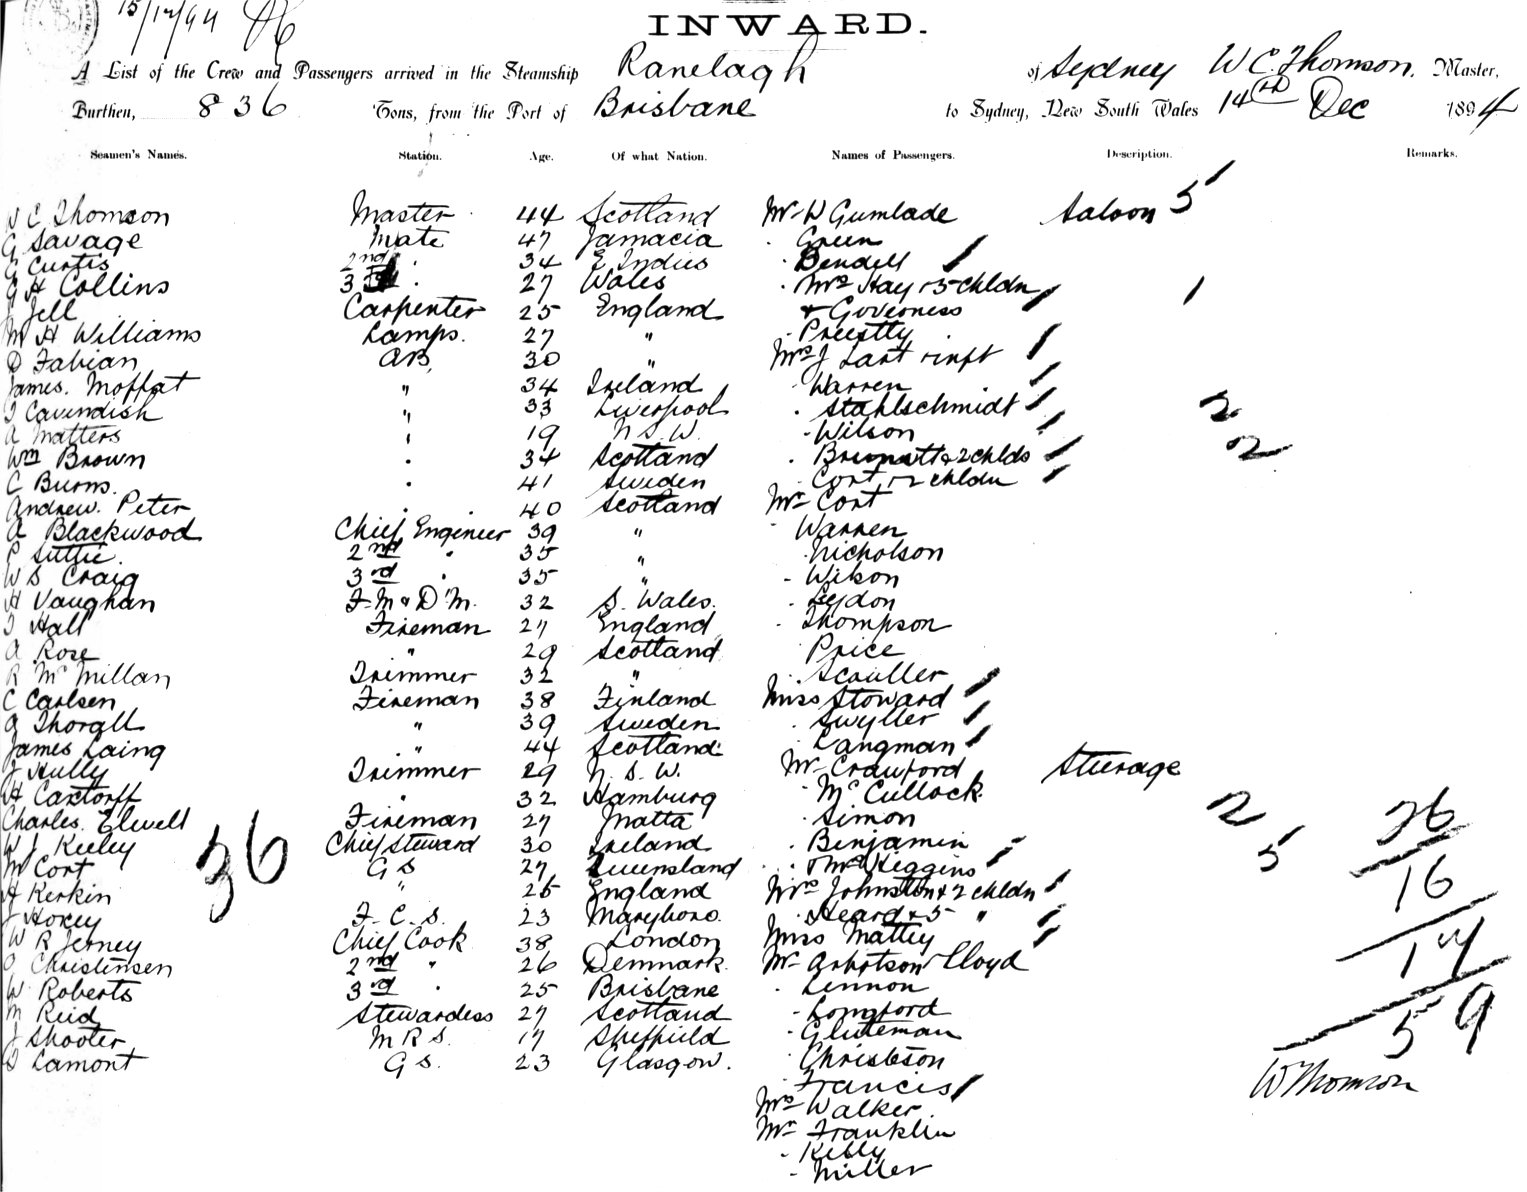 15/12/94
INWARD.
A List of the Crew and Passengers arrived in the Steamship Ranelagh of Sydney W C. Thomson, Master,
Burthen, 836 Tons, from the Port of Brisbane to Sydney, New South Wales 14th Dec 1894
Seamen's Names. Station. Age. Of what Nation. Names of Passengers. Description. Remarks.
W C Thomson Master 44 Scotland Mr W Gumlade Saloon 5
G Savage Mate 47 Jamacia . Green
G Curtis 2nd " 34 E Indies . Bendell
G H Collins 3rd " 27 Wales . Mrs Hay & 5 chldn 1
J Jell Carpenter 25 England & Governess
M H Williams Lamps. 27 " . Preestly
D Fabian AB, 30 " Mrs J Lart & inft
James. Moffat " 34 Ireland . Warren
T Cavendish " 33 Liverpool . Stahlschmidt 2
A Matters " 19 N.S.W. . Wilson 2
Wm Brown . 34 Scotland . & 2 chlds
C Burns. . 41 Sweden . Cort & 2 chldn
Andrew. Peter . 40 Scotland Mr Cort
A Blackwood Chief Engineer 39 " . Warren
P Suttie. 2nd " 35 " . Nicholson
W S Craig 3rd " 35 " . Wilson
H Vaughan F.M & D.M. 32 S. Wales. . Leydon
T Hall Fireman 27 England . Thompson
A Rose " 29 Scotland . Price
R McMillan Trimmer 32 " . Scouller
C Carlsen Fireman 38 Finland Miss Stoward
A Thorgll " 39 Sweden . Swyller
James Laing " 44 Scotland . Langman
J Hully Trimmer 29 N.S.W. Mr Crawford Sturage
H Caxtorff " 32 Hamburg . McCullock
Charles. Elwell Fireman 27 Malta . Simon 2 26
W J Keeley Chief Steward 30 Ireland . Benjamin 5
M Cort G S 27 Queensland . & Mrs Higgins 16
H Kerkin " 25 England Mrs Johnston & 2 chldn
36
J Hoxey F. C. S. 23 Maryboro. . Heard & 5 "
W R Jerney Chief Cook 38 London Miss Mattey 17
O Christensen 2nd " 26 Denmark Mr Lloyd
W Roberts 3rd " 25 Brisbane . Lennon
M Reid Stewardess 27 Scotland . Longford 59
J Shooter M R S. 17 Sheffield . Gluteman
D Lamont G S. 23 Glasgow. . Christeson
. Francis W Thomson
Mrs Walker
Mr Franklin
. Kelly
. Miller